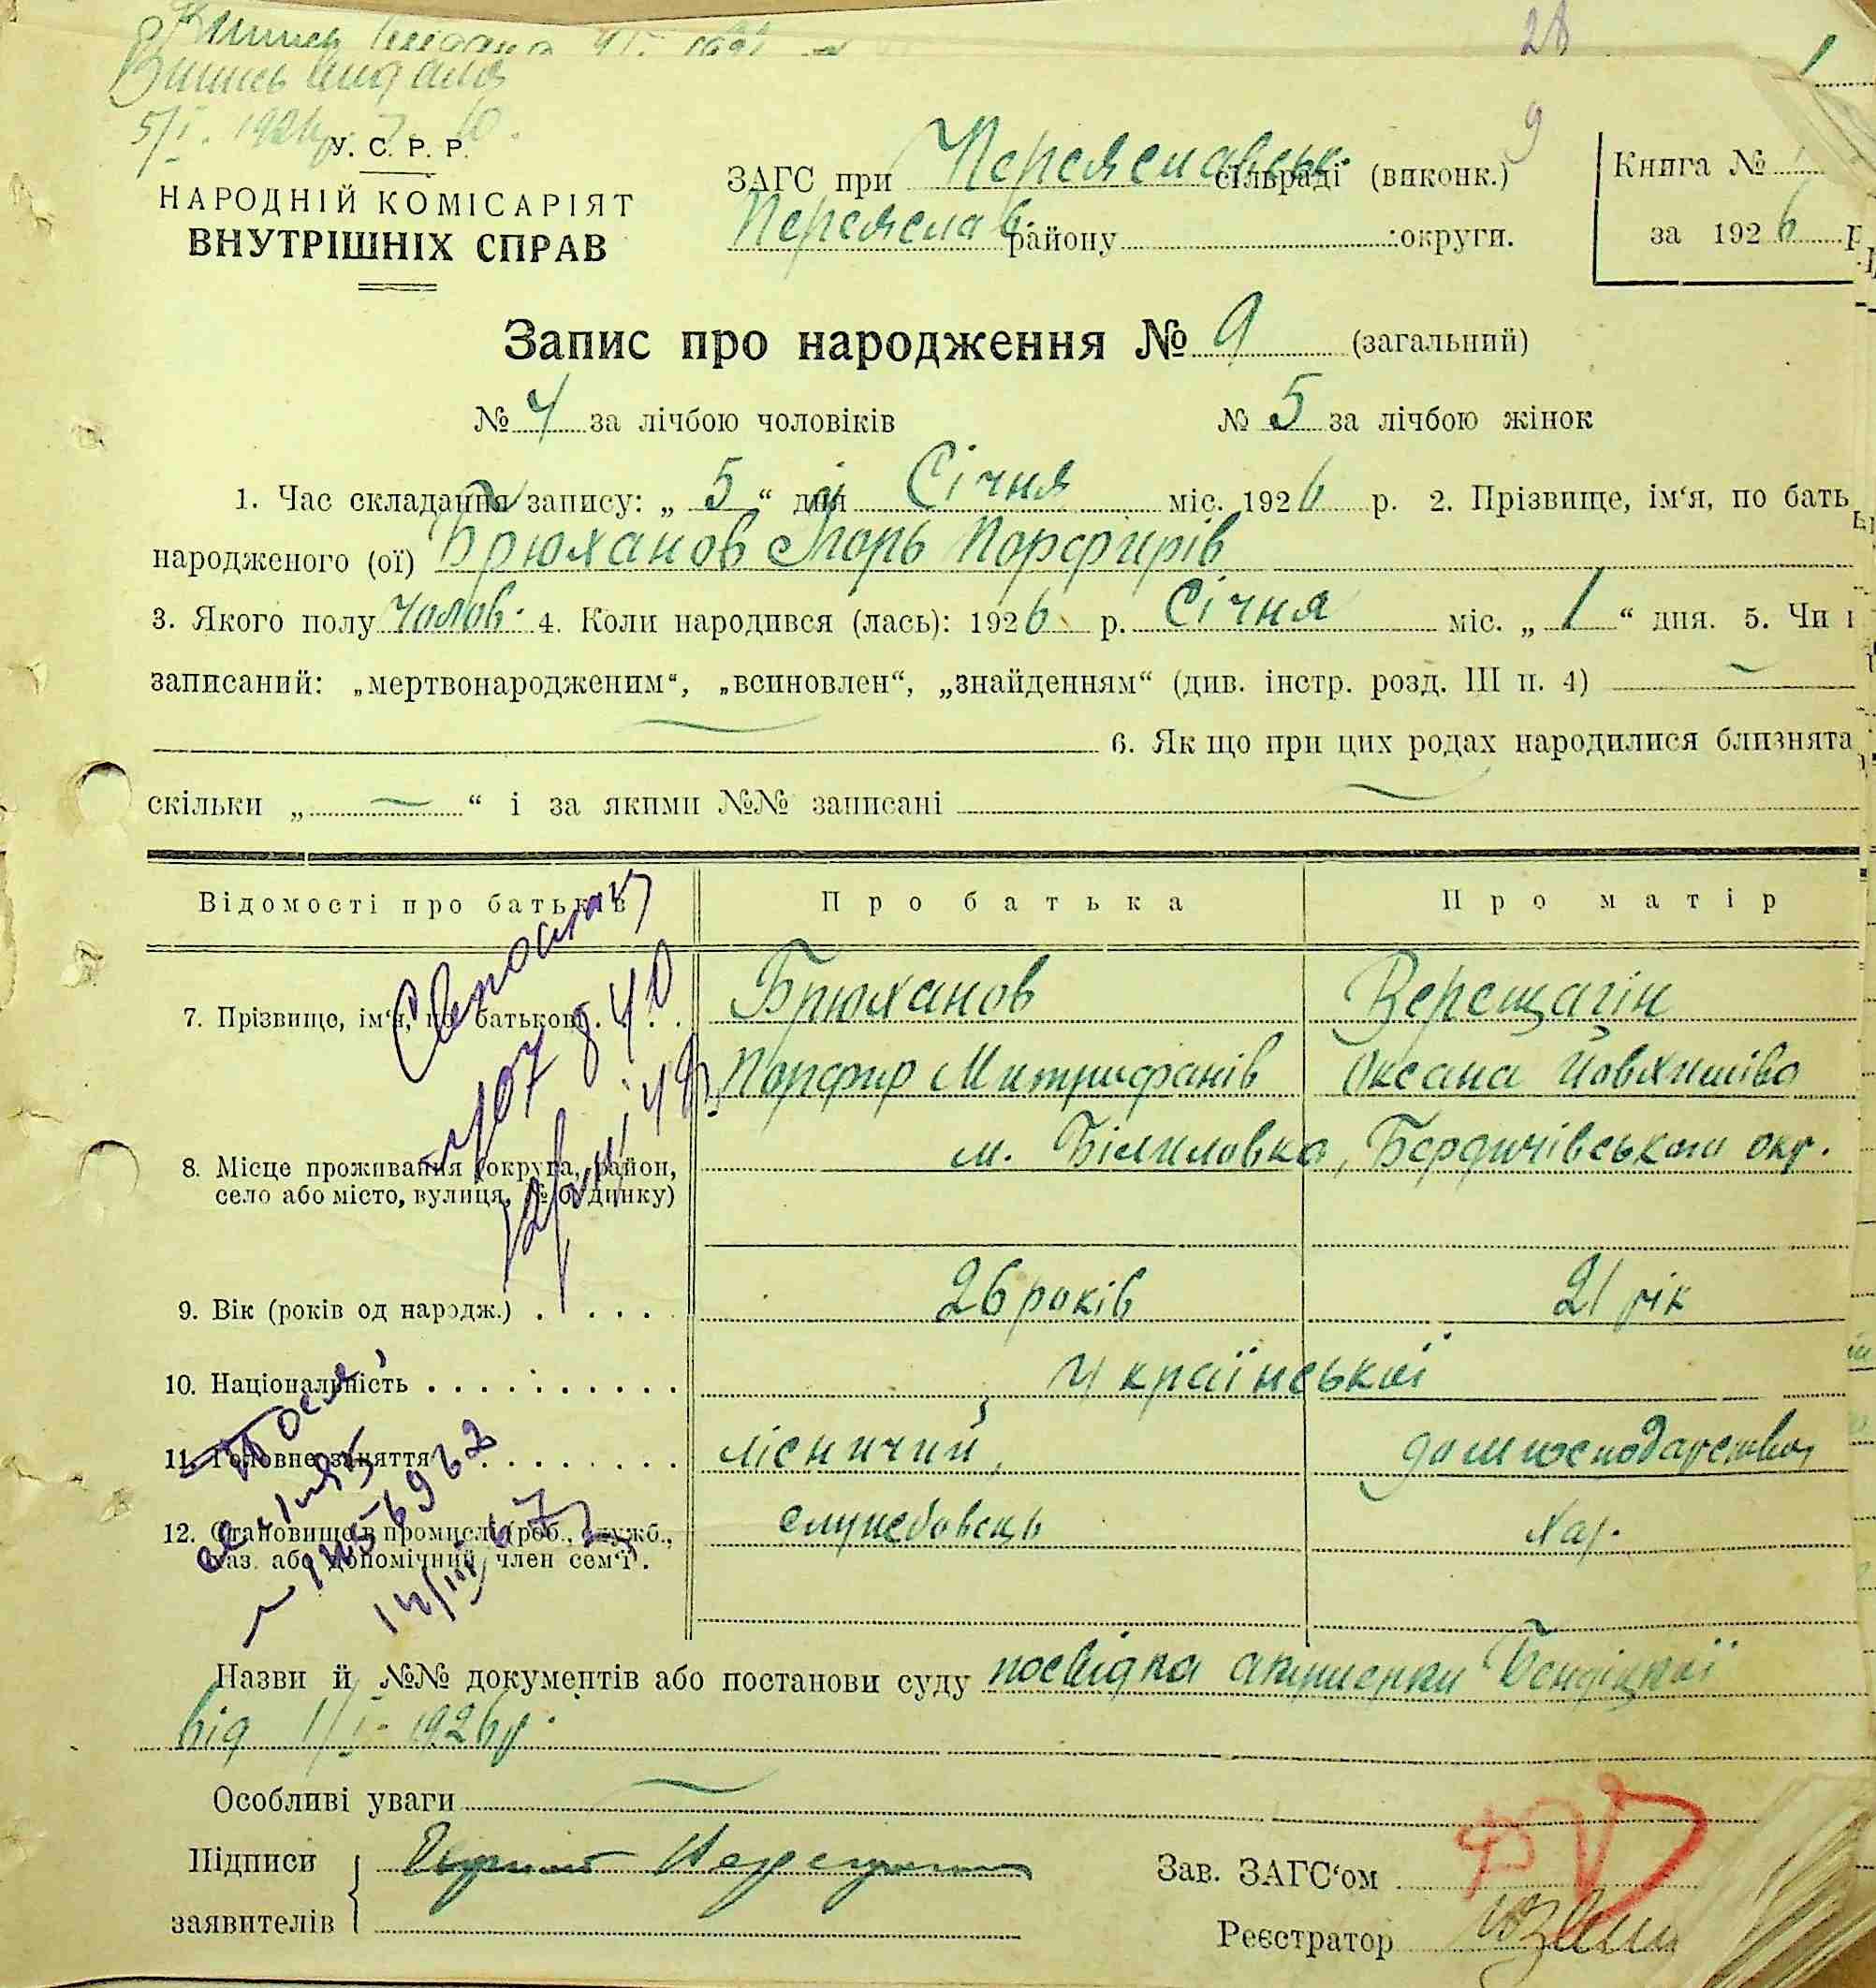 28
Випись видана
5/I. 1926р.
9
У. С. Р. Р.
НАРОДНІЙ КОМІСАРІЯТ
ВНУТРІШНІХ СПРАВ
ЗАГС при Переяславськ. сільраді (виконк.)
Переяслав. району округи.
Книга №
за 1926 р
Запис про народження № 9 (загальний)
№ 4 за лічбою чоловіків № 5 за лічбою жінок
1. Час складання запису: „ 5 “ дня Січня міс. 1926 р. 2. Прізвище, ім‘я, по бать
народженого (ої) Брюханов Ігорь Порфирів
3. Якого полу чолов. 4. Коли народився (лась): 1926 р. Січня міс. „ 1 “ дня. 5. Чи
записаний: „мертвонародженим“, „всиновлен“, „знайденням“ (див. інстр. розд. III п. 4)
6. Як що при цих родах народилися близнята
скільки „ — “ і за якими №№ записані
Відомості про батьків Про батька Про матір
7. Прізвище, ім‘я, по батькові . . . Брюханов Верещагін
Порфир Митрифанів Оксана Йовхимівна
8. Місце проживання (округа, район, м. Білиловка, Бердичівського окр.
село або місто, вулиця, № будинку)
9. Вік (років од народж.) . . . . . 26 років 21 рік
10. Національність . . . . . . . . . . української
11. Головне заняття . . . . . . . . . лісничий, домгосподарство
12. Становище в промислі (роб., служб., службовець хаз.
хаз. або допомічний член сем‘ї .
14/III 67
Назви й №№ документів або постанови суду посвідка акушерки Бендіцкої
від 1/I- 1926р.
Особливі уваги
Підписи
заявителів
Зав. ЗАГС‘ом
Реєстратор